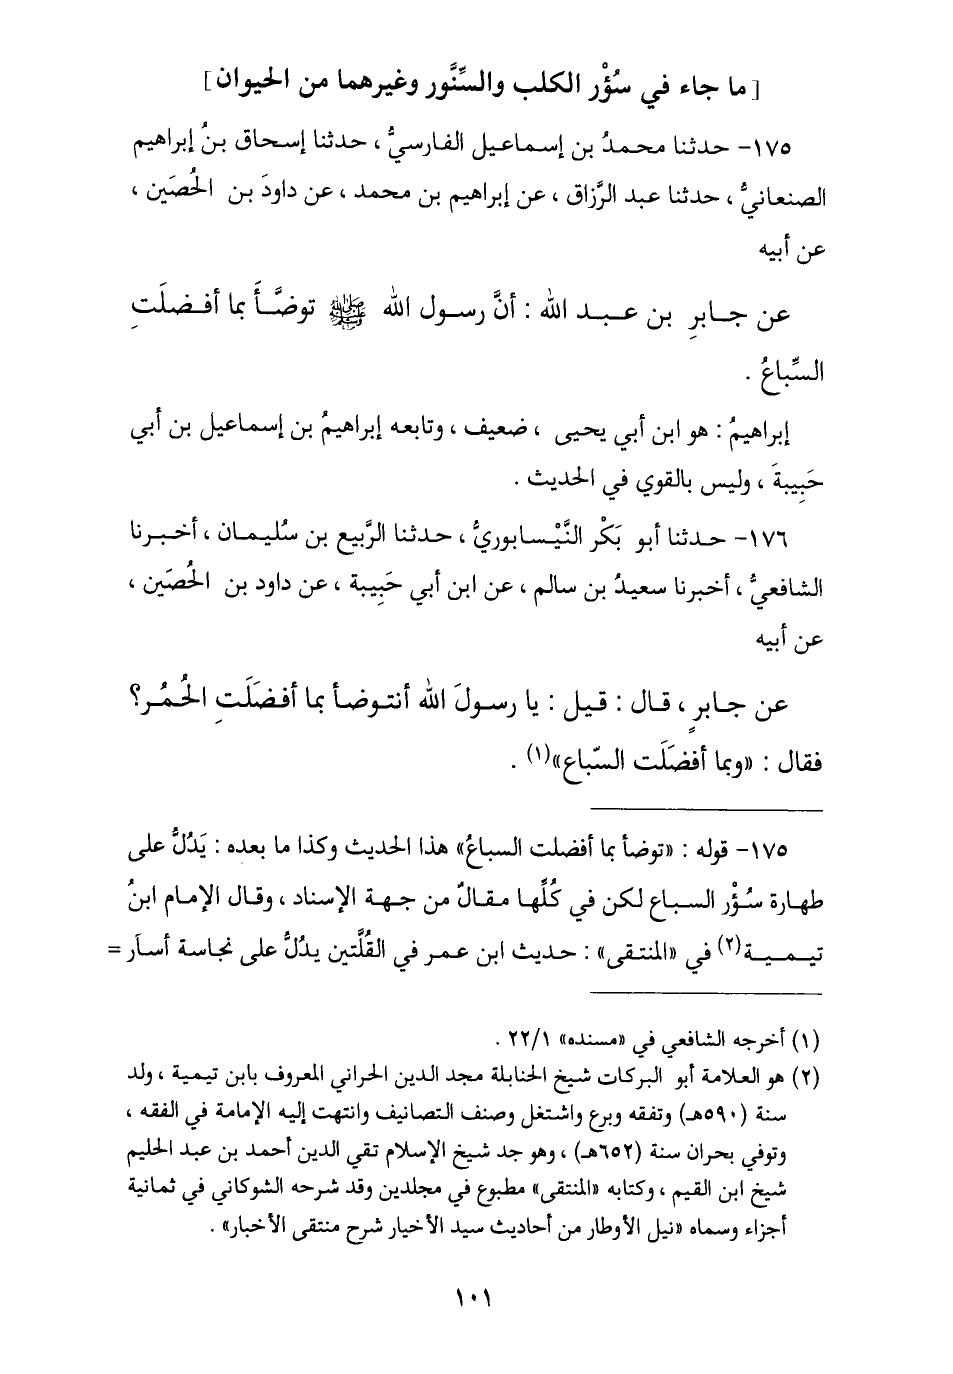 [ ما جاء في سُؤْر الكلب والسِّنَّور وغيرهما من الحيوان ]
١٧٥- حدثنا محمدُ بن إسماعيل الفارسيُّ ، حدثنا إسحاق بنُ إبراهيم
الصنعانيُّ ، حدثنا عبد الرَّزاق ، عن إبراهيم بن محمد ، عن داودَ بن الحُصَين ،
عن أبيه
عن جابرِ بن عبد الله : أنَّ رسول الله ﷺ توضَّأ بما أفضلَتِ
السِّباعُ .
إبراهيمُ : هو ابن أبي يحيى ، ضعيف ، وتابعه إبراهيمُ بن إسماعيل بن أبي
حَبِيبةَ ، وليس بالقوي في الحديث .
١٧٦- حدثنا أبو بَكْر النَّيْسابوريُّ ، حدثنا الرَّبيع بن سُليمان ، أخبرنا
الشافعيُّ ، أخبرنا سعيدُ بن سالم ، عن ابن أبي حَبِيبة ، عن داود بن الحُصَين ،
عن أبيه
عن جابرٍ ، قال : قيل : يا رسولَ الله أنتوضأ بما أفضَلَتِ الحُمُر؟
فقال : «وبما أفضَلَت السّباع»(١) .
١٧٥- قوله : «توضأ بما أفضلت السباعُ» هذا الحديث وكذا ما بعده : يَدُلُّ على
طهارة سُؤْر السباع لكن في كُلِّها مقالٌ من جهة الإسناد ، وقال الإمام ابنُ
تيمية(٢) في «المنتقى» : حديث ابن عمر في القُلَّتين يدُلُّ على نجاسة أسآر =
(١) أخرجه الشافعي في «مسنده» ٢٢/١ .
(٢) هو العلامة أبو البركات شيخ الحنابلة مجد الدين الحراني المعروف بابن تيمية ، ولد
سنة (٥٩٠هـ) وتفقه وبرع واشتغل وصنف التصانيف وانتهت إليه الإمامة في الفقه ،
وتوفي بحران سنة (٦٥٢هـ) ، وهو جد شيخ الإسلام تقي الدين أحمد بن عبد الحليم
شيخ ابن القيم ، وكتابه «المنتقى» مطبوع في مجلدين وقد شرحه الشوكاني في ثمانية
أجزاء وسماه «نيل الأوطار من أحاديث سيد الأخيار شرح منتقى الأخبار» .
١٠١